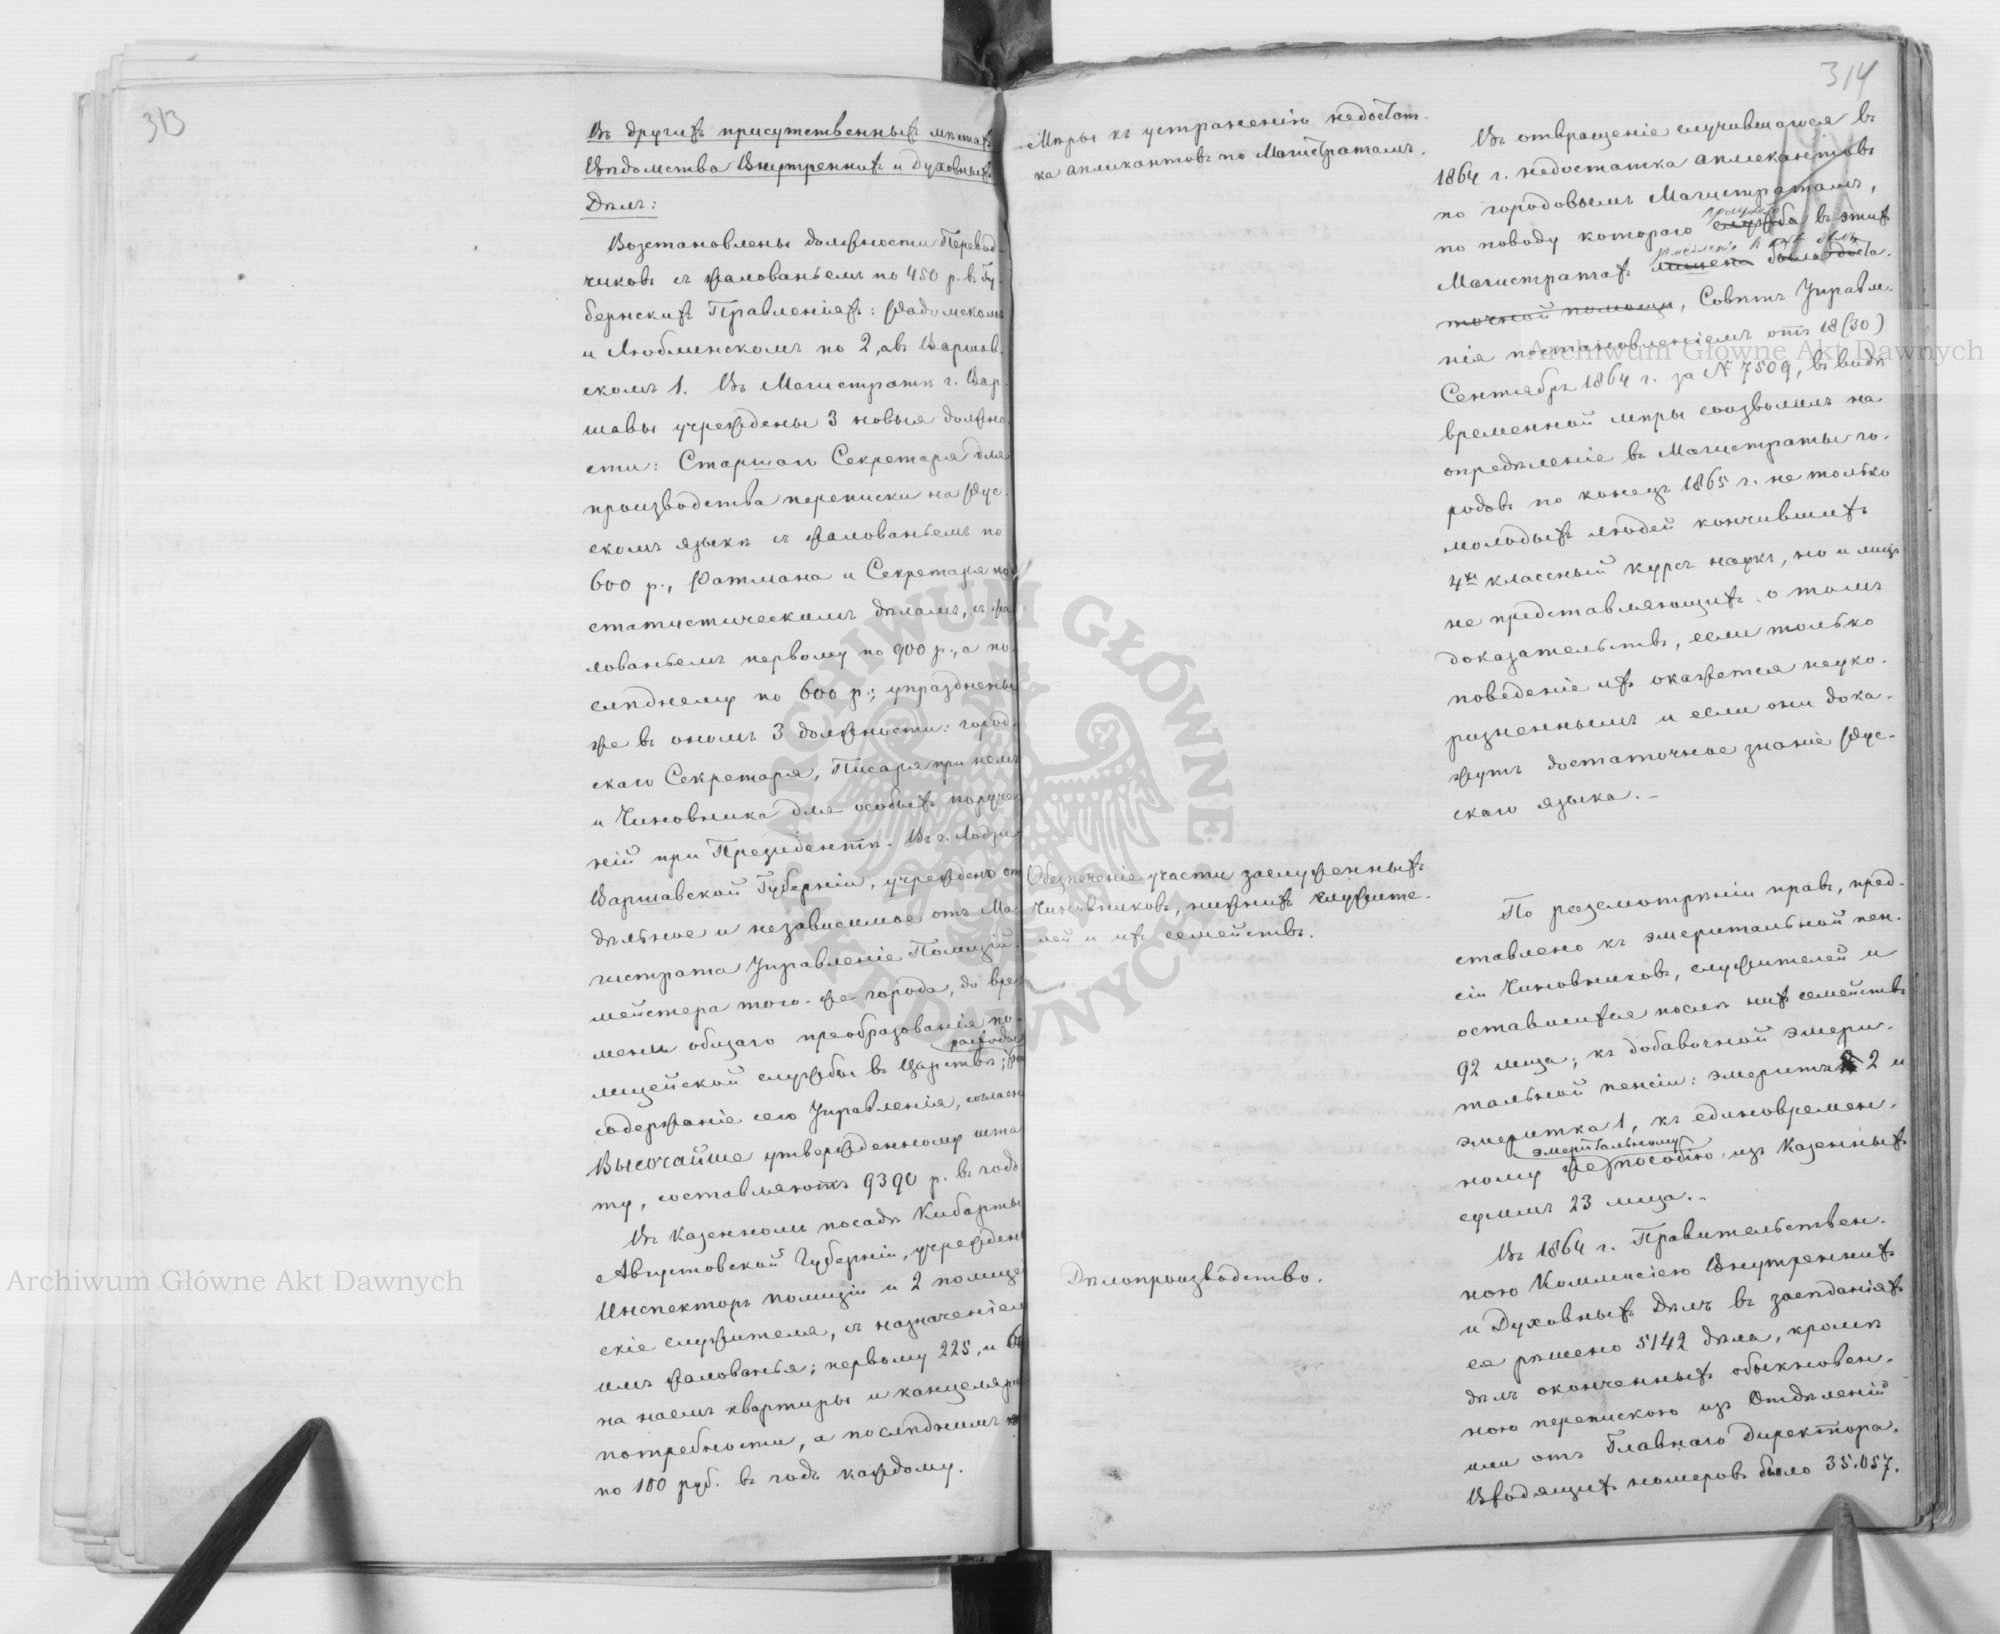 313
Въ другихъ присутственныхъ мѣстахъ
Вѣдомства Внутреннихъ и Духовныхъ
Дѣлъ:
Возстановлены должности Перевод-
чиковъ съ жалованьемъ по 450 р. въ Гу-
бернскихъ Правленіяхъ: Радомскомъ
и Люблинскомъ по 2, а въ Варшав-
скомъ 1. Въ Магистратѣ г. Вар-
шавы учреждены 3 новыя должно-
сти: Старшаго Секретаря для
производства переписки на Рус-
скомъ языкѣ съ жалованьемъ по
600 р., Ратмана и Секретаря по
статистическимъ дѣламъ, съ жа-
лованьемъ первому по 900 р., а по-
слѣднему по 600 р.; упразднены
же въ ономъ 3 должности: город-
скаго Секретаря, Писаря при немъ
и Чиновника для особыхъ поруче-
ній при Президентѣ. Въ г. Лодзи
Варшавской Губерніи, учреждено от-
дѣльное и независимое отъ Ма-
гистрата Управленіе Полицій-
мейстера того-же города, до вре-
мени общаго преобразованія по-
расходы
лицейской службы въ Царствѣ; на
содержаніе сего Управленія, согласно
Высочайше утвержденному шта-
ту, составляютъ 9390 р. въ годъ
Въ казенномъ посадѣ Кибарты
Августовской Губерніи, учреждены
Инспекторъ полиціи и 2 полицей-
скіе служителя, съ назначеніемъ
имъ жалованья; первому 225, и
на наемъ квартиры и канцелярск
потребности, а послѣднимъ
по 100 руб. въ годъ каждому.
314
Мѣры къ устраненію недостат-
ка апликантовъ по Магистратамъ.
Въ отвращеніе случившагося въ
1864 г. недостатка аплекантовъ
по городовымъ Магистратамъ,
по поводу котораго служба въ этихъ
Магистратахъ лишена была доста-
точной помощи, Совѣтъ Управле-
нія постановленіемъ отъ 18 (30)
Сентября 1864 г. за № 7509, въ видѣ
временной мѣры соизволилъ на
опредѣленіе въ Магистраты го-
родовъ по конецъ 1865 г. не только
молодыхъ людей кончившихъ
4хъ классный курсъ наукъ, но и лицъ
не представляющихъ о томъ
доказательствъ, если только
поведеніе ихъ окажется неуко-
ризненнымъ и если они дока-
жутъ достаточное знаніе Рус-
скаго языка.-
Обезпеченіе участи заслуженныхъ
Чиновниковъ, нижнихъ служите-
лей и ихъ семействъ.
По разсмотрѣніи правъ, пред-
ставлено къ эмеритальной пен-
сіи Чиновниковъ, служителей и
оставшихся послѣ нихъ семействъ
92 лица; къ добавочной эмери-
тальной пенсіи: эмерита 2 и
эмеритка 1, къ единовремен-
эмеритальному
ному же пособію изъ казенныхъ
суммъ 23 лица.-
Дѣлопроизводство.
Въ 1864 г. Правительствен-
ною Коммисіею Внутреннихъ
и Духовныхъ Дѣлъ въ засѣданіяхъ
ея рѣшено 5142 дѣла, кромѣ
дѣлъ оконченныхъ обыкновен-
ною перепискою изъ Отдѣленій
или отъ Главнаго Директора.
Входящихъ номеровъ было 35.057.
Archiwum Główne Akt Dawnych
Archiwum Główne Akt Dawnych
ARCHIWUM GŁÓWNE AKT DAWNYCH